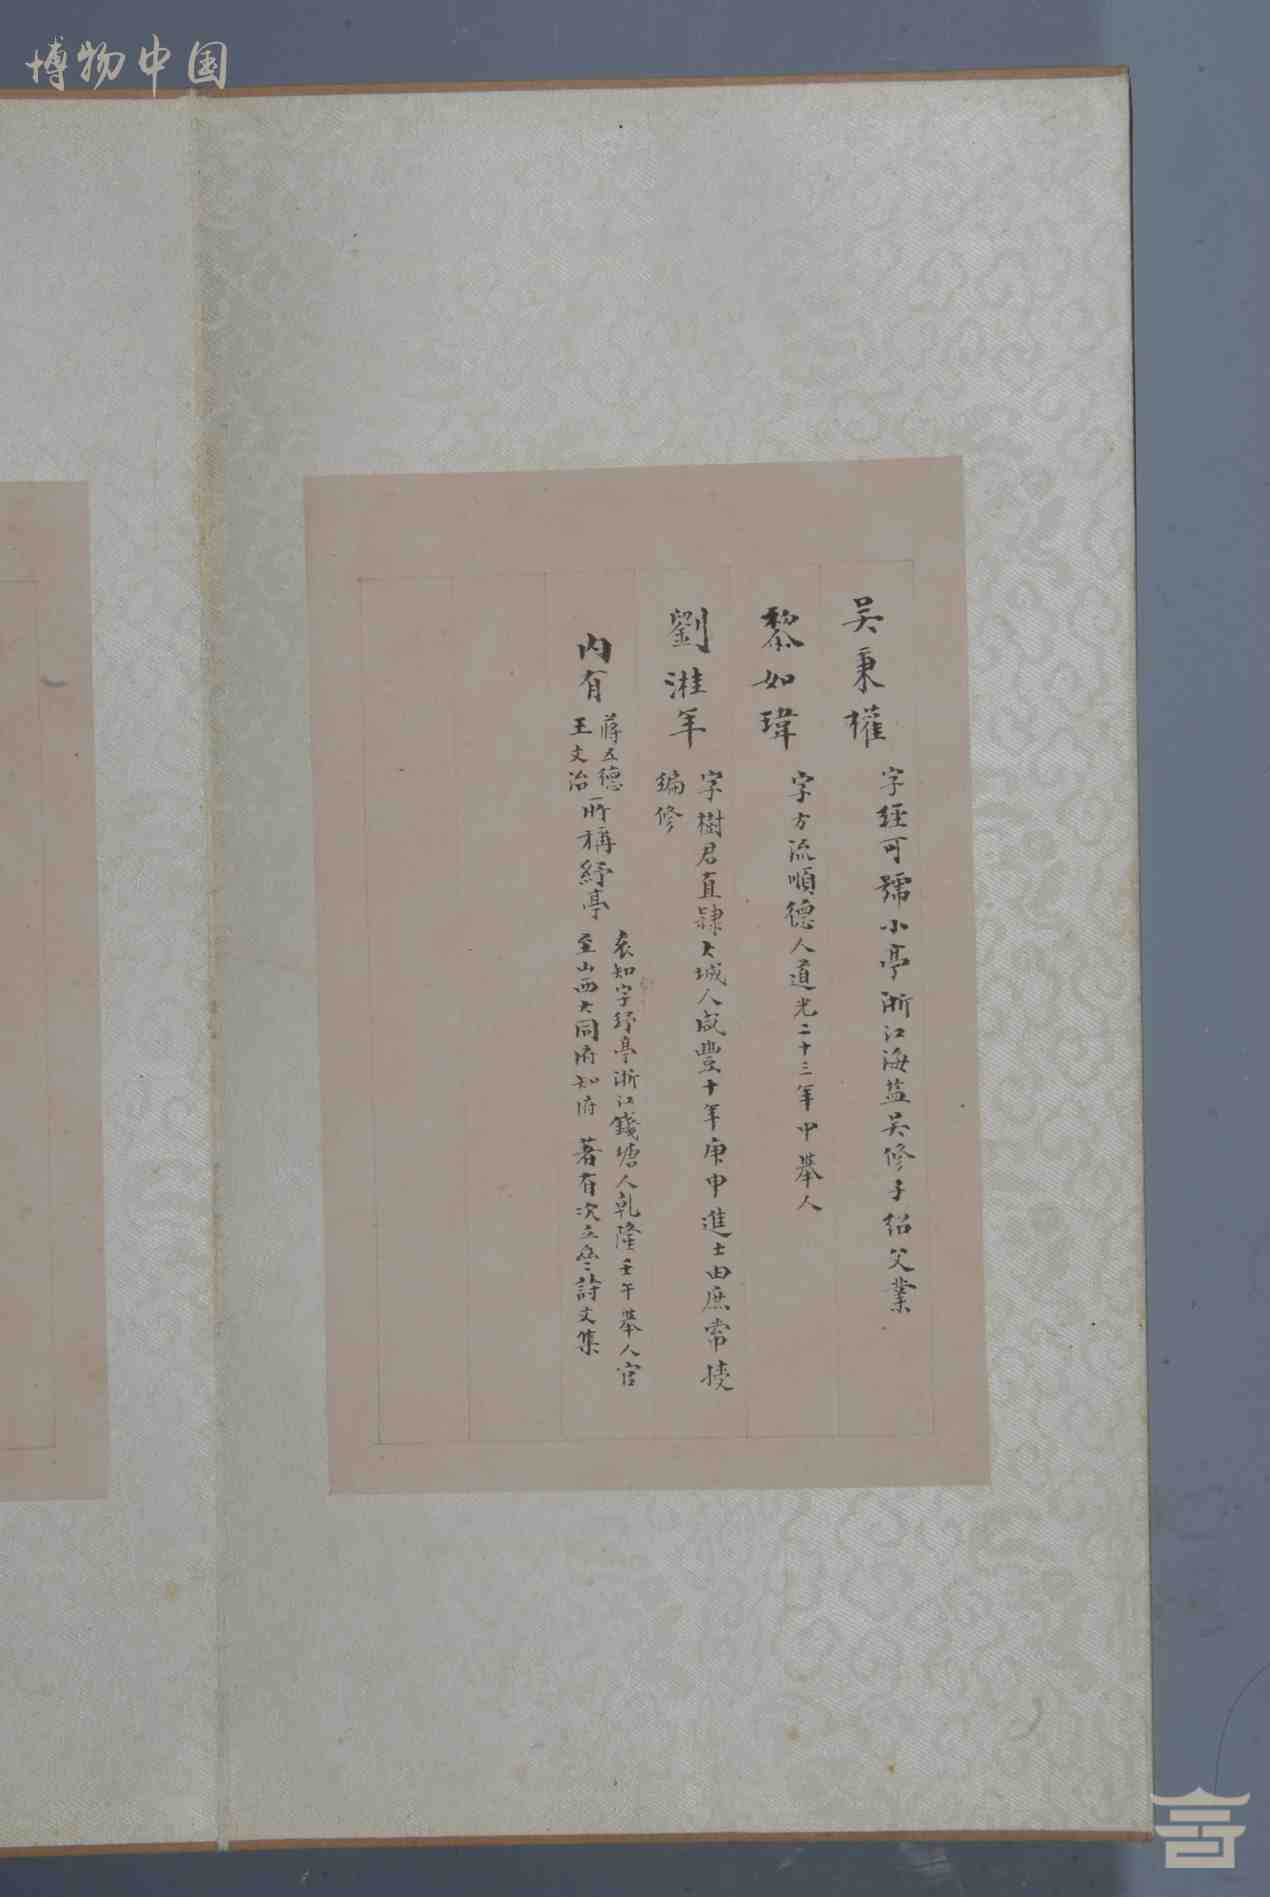 博物中国
吴秉權 字經可號小亭浙江海盐吴修子紹父業
黎如瑋 字方流順德人道光二十三年中舉人
劉溎年 字樹君直隸大城人咸豐十年庚申進士由庶常授
編修
内有 蔣五德
王文治
所稱紓亭 袁知字紓亭浙江錢塘人乾隆壬午舉人官
至山西大同府知府 著有次立齋詩文集